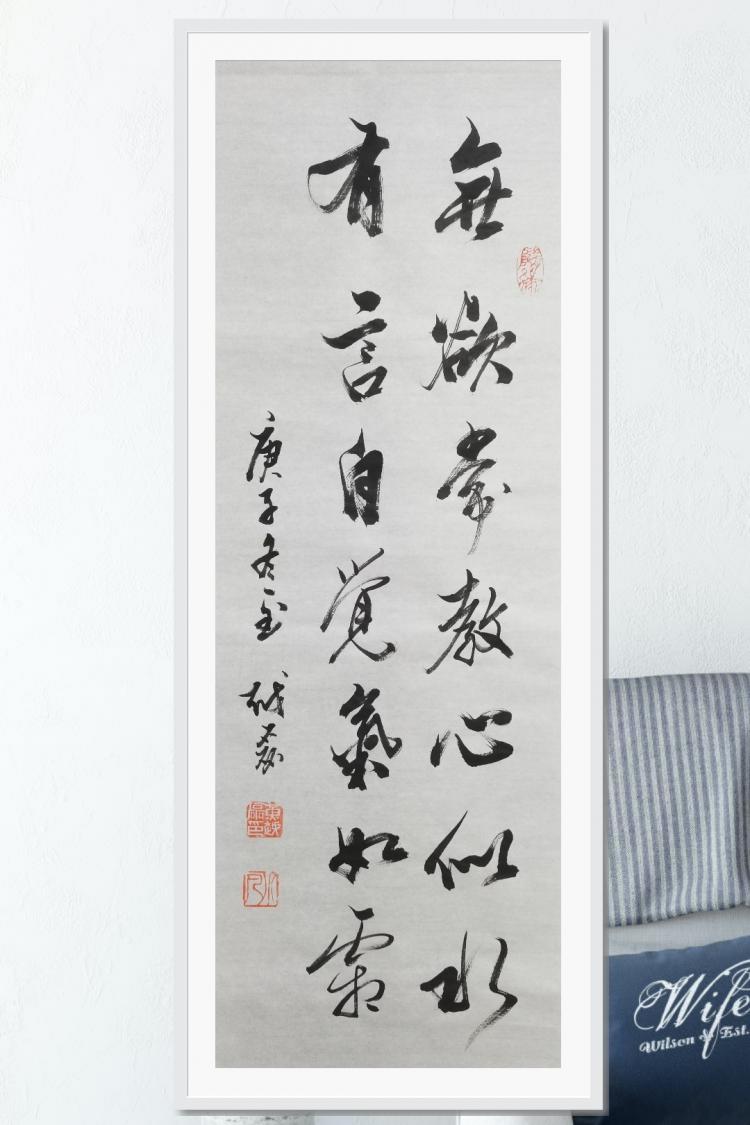 無欲常教心似水
有言自覚氣如霜
庚子冬至
Wife
Wilson & Est.